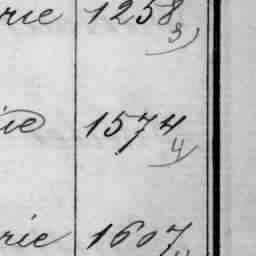 rie 1258
3)
rie 1574
4)
rie 1607